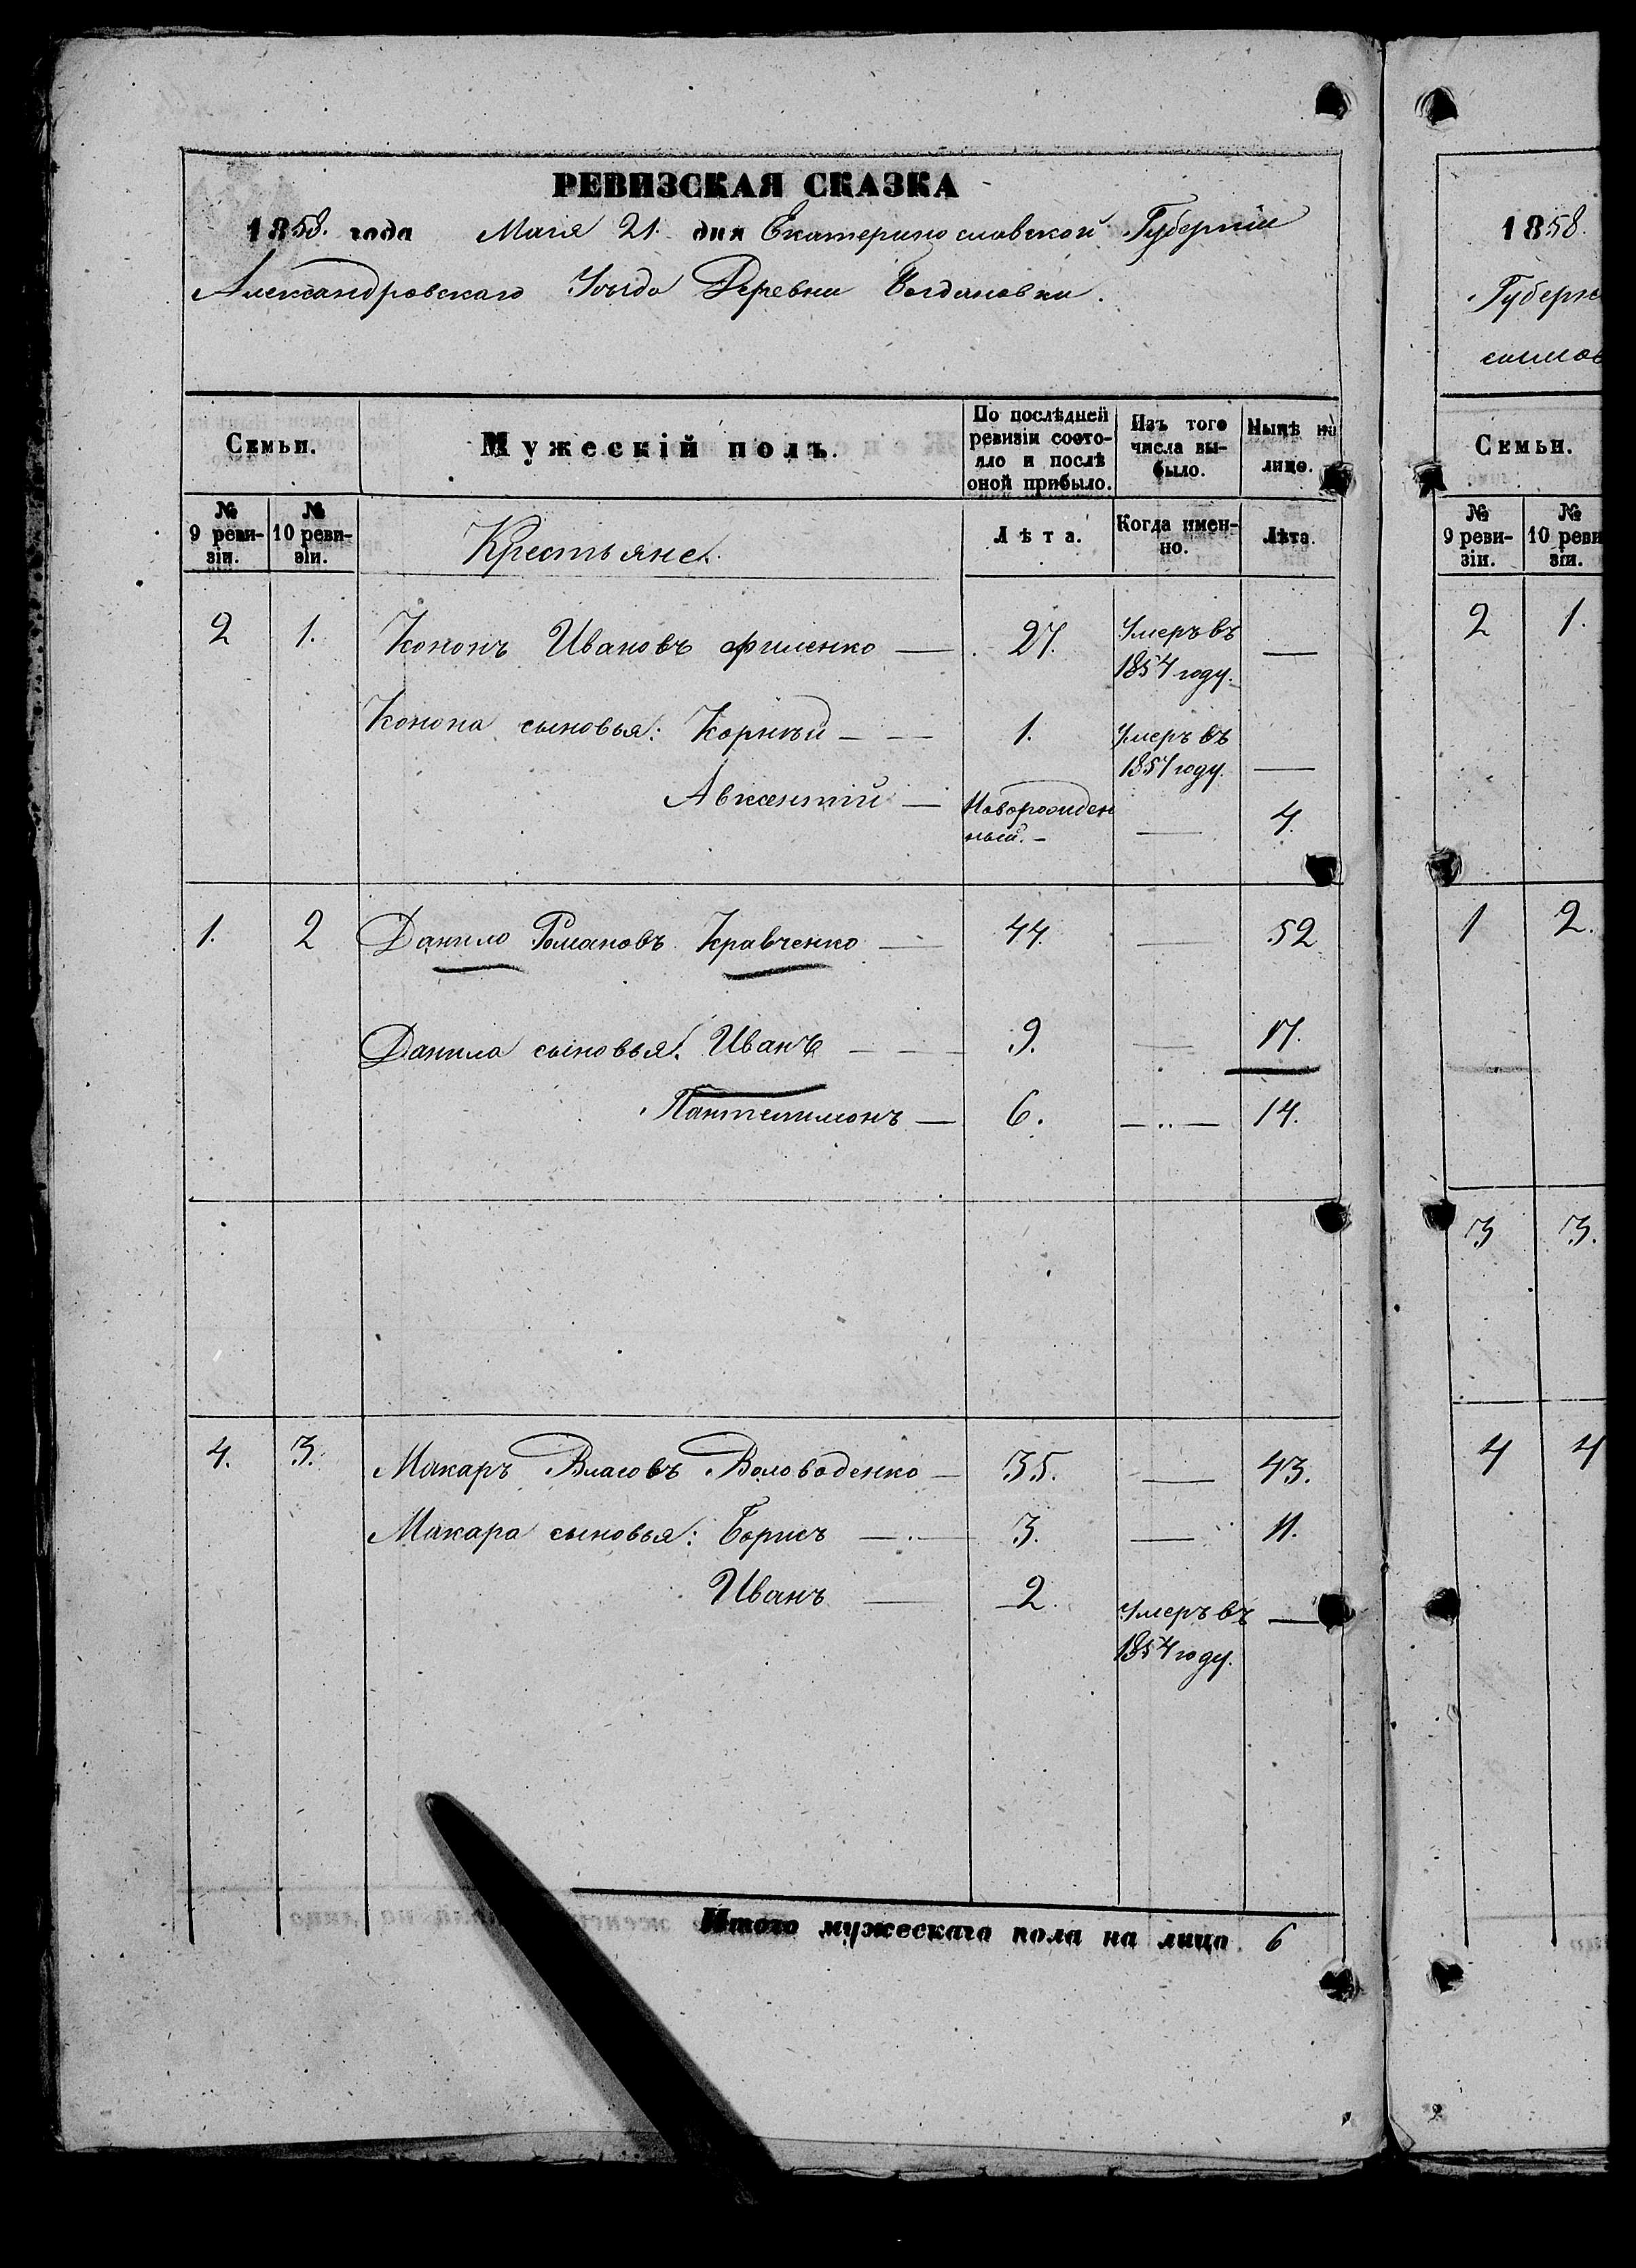 РЕВИЗСКАЯ СКАЗКА
1858. года Мая 21. дня Екатеринославской Губерніи
Александровскаго Уѣзда Деревни Богдановки.
Семьи.
Мужескій полъ.
По послѣдней ревизіи состояло и послѣ оной прибыло.
Изъ того числа выбыло.
Нынѣ на лицо.
№ 9 ревизіи.
№ 10 ревизіи.
Крестьяне.
Лѣта.
Когда именно.
Лѣта.
2 1. Кононъ Ивановъ Филенко — 27. Умеръ въ 1854 году. —
Конона сыновья: Корнѣй — — 1. Умеръ въ 1857 году. —
Авксентій — Новорожденный. — — 4.
1. 2 Данило Романовъ Кравченко — 44. — 52
Данила сыновья: Иванъ — — 9. — 17.
Пантелимонъ — 6. — .. — 14.
4. 3. Макаръ Власовъ Воловоденко — 35. — 43.
Макара сыновья: Борисъ — . — 3. — 11.
Иванъ — 2. Умеръ въ 1854 году. —
Итого мужескаго пола на лицо 6
1858.
Губерн
Семьи.
№ 9 ревизіи.
№ 10 реви зіи.
2 1.
1 2.
3 3.
4 4
2